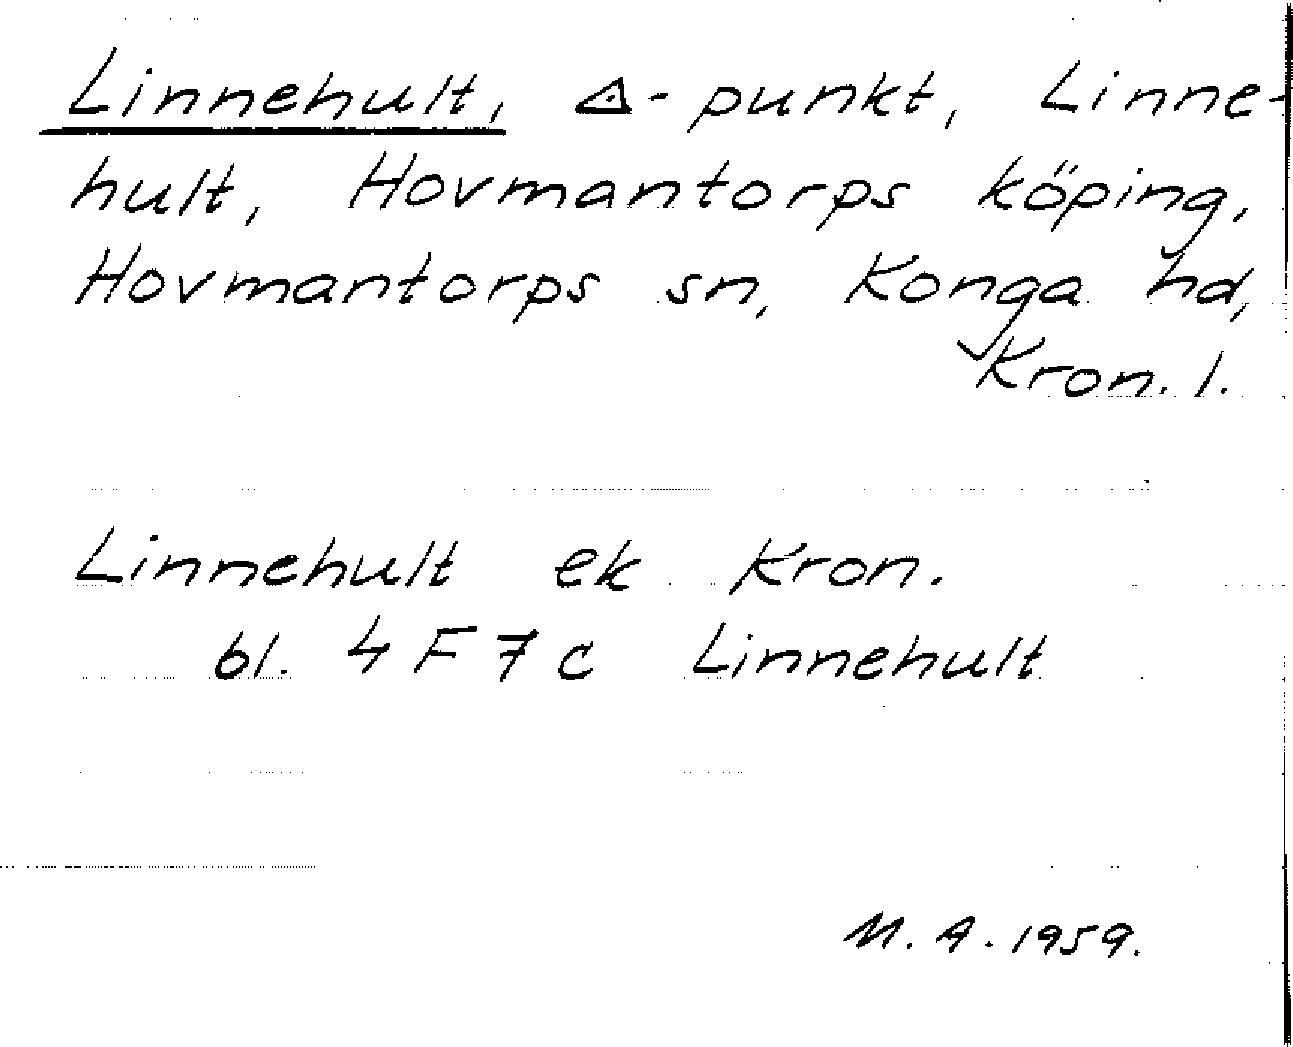 Linnehult, △-punkt, Linne-
hult, Hovmantorps köping,
Hovmantorps sn, Konga hd,
Kron. l.
Linnehult ek Kron.
bl. 4 F 7 c Linnehult
M. A. 1959.